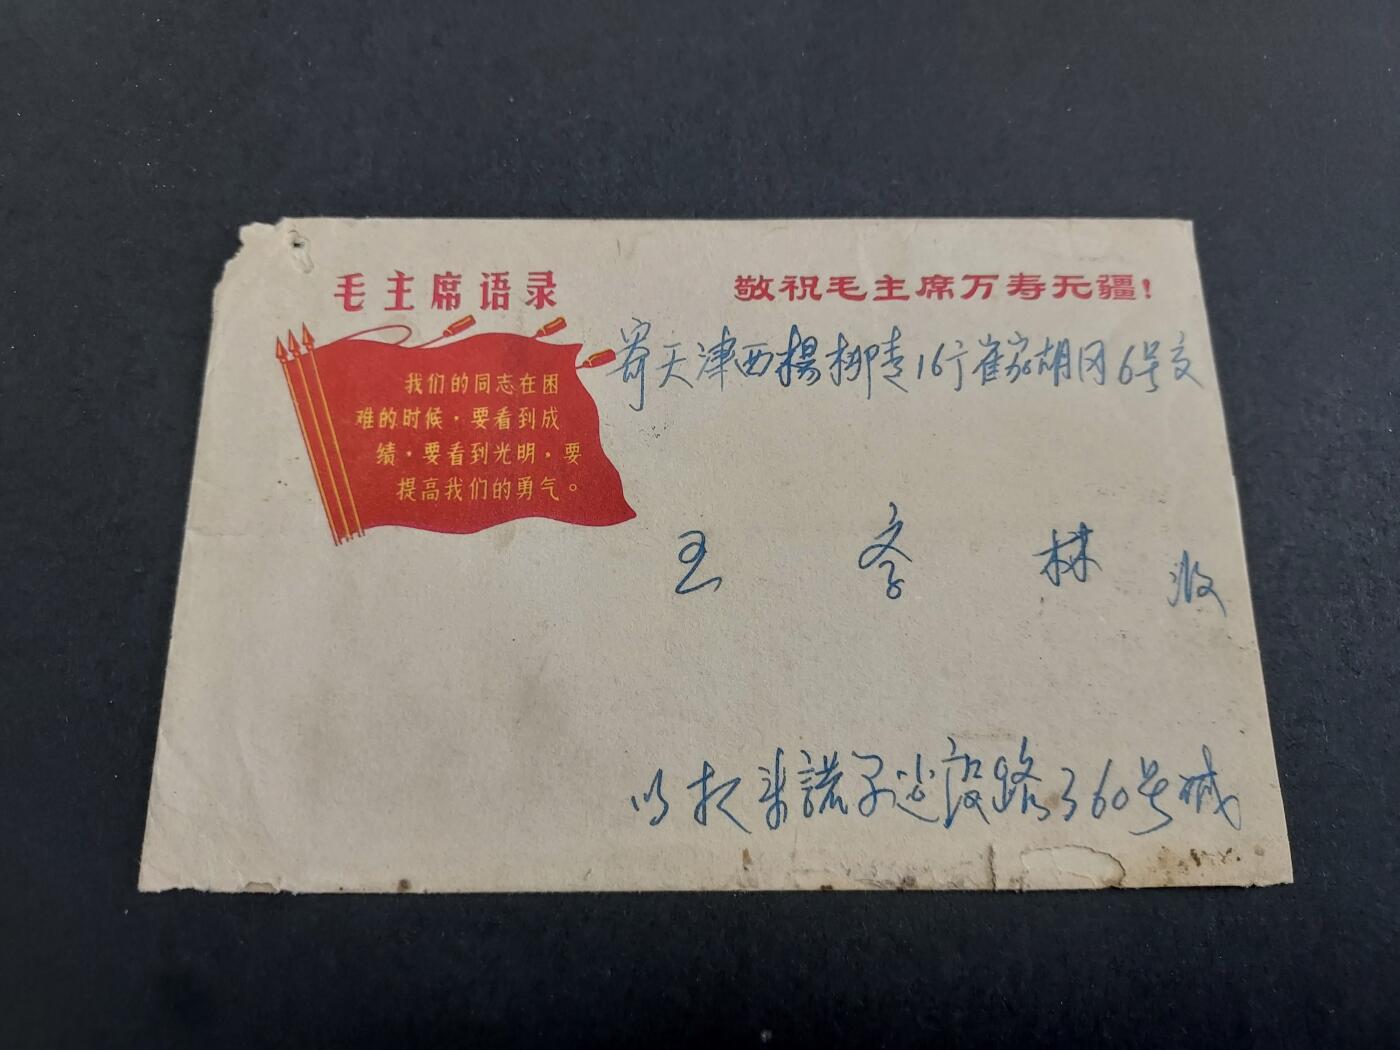 毛主席语录
敬祝毛主席万寿无疆!
我们的同志在困
难的时候，要看到成
绩，要看到光明，要
提高我们的勇气。
寄天津西楊柳青16疗崔家胡同6号交
王 李 林 收
路360号